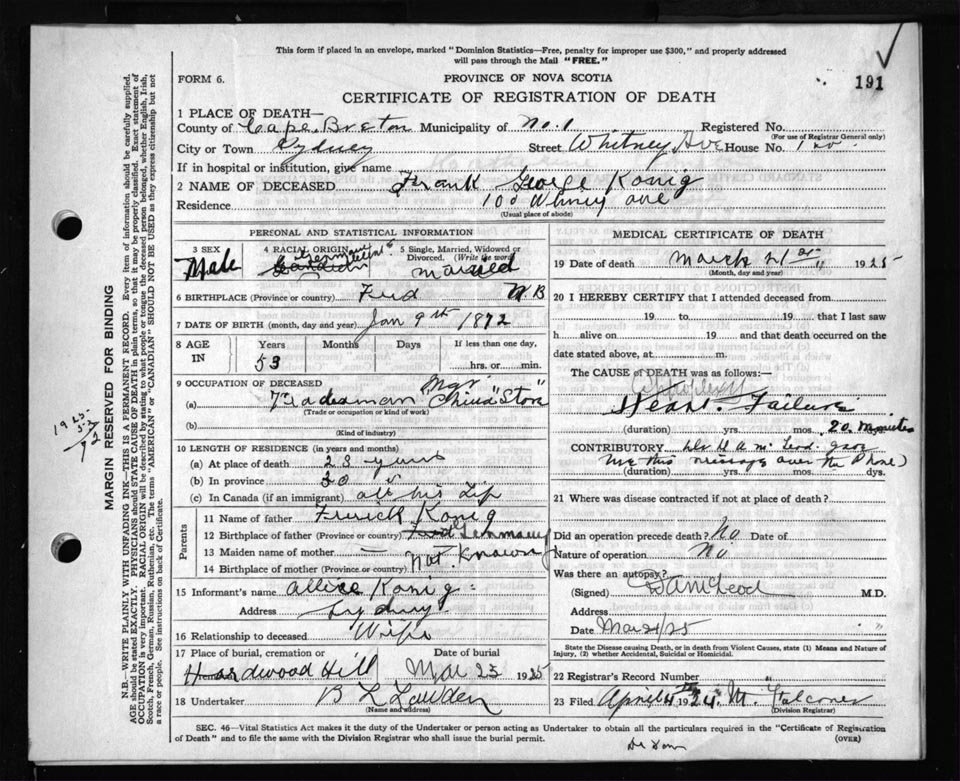 This form if placed in an envelope, marked "Dominion Statistics—Free, penalty for improper use $300," and properly addressed
will pass through the Mail "FREE."
FORM 6.
PROVINCE OF NOVA SCOTIA
191
CERTIFICATE OF REGISTRATION OF DEATH
1 PLACE OF DEATH—
County of Cape Breton Municipality of No. 1 Registered No.
(For use of Registrar General only)
City or Town Sydney Street Whitney Ave House No. 100
If in hospital or institution, give name
2 NAME OF DECEASED Frank George Konig
Residence 100 Whitney ave
(Usual place of abode)
PERSONAL AND STATISTICAL INFORMATION
3 SEX
Male
4 RACIAL ORIGIN
German
Canadian
5 Single, Married, Widowed or Divorced. (Write the word)
married
6 BIRTHPLACE (Province or country) N.B
7 DATE OF BIRTH (month, day and year) Jan 9th 1872
8 AGE IN
Years Months Days If less than one day,
53 hrs. or min.
9 OCCUPATION OF DECEASED
(a) Tradesman Mgr "China Store"
(Trade or occupation or kind of work)
(b)
(Kind of industry)
10 LENGTH OF RESIDENCE (in years and months)
(a) At place of death 23 years
(b) In province 30
(c) In Canada (if an immigrant) all his Life
Parents
11 Name of father Konig
12 Birthplace of father (Province or country) Germany
13 Maiden name of mother —
14 Birthplace of mother (Province or country) Not Known
15 Informant's name Allice Konig
Address Sydney
16 Relationship to deceased Wife
17 Place of burial, cremation or
Hardwood Hill
Date of burial
Mar 23 1925
18 Undertaker B L
(Name and address)
MEDICAL CERTIFICATE OF DEATH
19 Date of death March 21st 1925
(Month, day and year)
20 I HEREBY CERTIFY that I attended deceased from
19 to 19 that I last saw
h alive on 19 and that death occurred on the
date stated above, at m.
The CAUSE OF DEATH was as follows:—
Heart Failure
(duration) yrs. mos. 20 minutes dys.
CONTRIBUTORY Dr H A McLeod gave
me this message over the Phone)
(duration) yrs. mos. dys.
21 Where was disease contracted if not at place of death?
Did an operation precede death? No Date of
Nature of operation No
Was there an autopsy?
(Signed) McLeod M.D.
Address
Date Mar 21/25
State the Disease causing Death, or in death from Violent Causes, state (1) Means and Nature of Injury, (2) whether Accidental, Suicidal or Homicidal.
22 Registrar's Record Number
23 Filed April 4th 192 M. Falconer
(Division Registrar)
SEC. 46—Vital Statistics Act makes it the duty of the Undertaker or person acting as Undertaker to obtain all the particulars required in the "Certificate of Registration
of Death" and to file the same with the Division Registrar who shall issue the burial permit.
(OVER)
MARGIN RESERVED FOR BINDING
N.B.—WRITE PLAINLY WITH UNFADING INK—THIS IS A PERMANENT RECORD. Every item of information should be carefully supplied.
AGE should be stated EXACTLY. PHYSICIANS should STATE CAUSE OF DEATH in plain terms, so that it may be properly classified. Exact statement of
OCCUPATION is very important. RACIAL ORIGIN will be described by stating to what people or tongue the deceased person belonged, whether English, Irish,
Scotch, French, German, Russian, Ruthenian, etc. The terms "AMERICAN" or "CANADIAN" SHOULD NOT BE USED as they express citizenship but not
a race or people. See instructions on back of Certificate.
1925
53